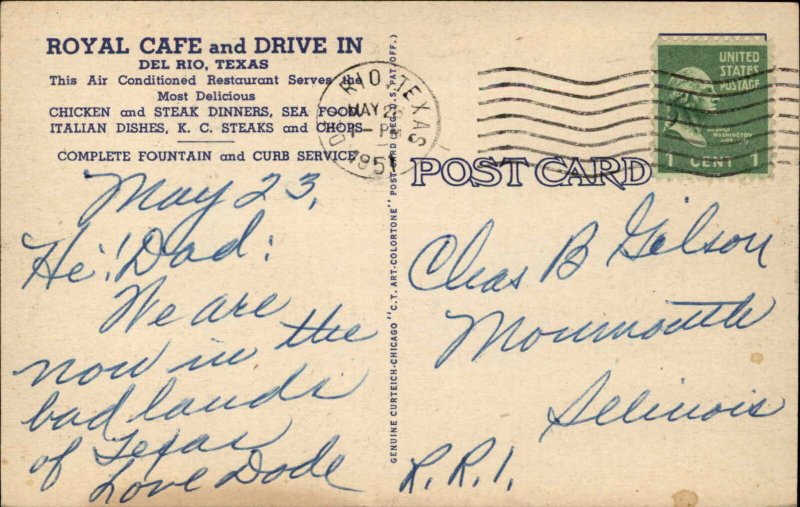 ROYAL CAFE and DRIVE IN
DEL RIO, TEXAS
This Air Conditioned Restaurant Serves the
Most Delicious
CHICKEN and STEAK DINNERS, SEA FOOD
ITALIAN DISHES, K. C. STEAKS and CHOPS
COMPLETE FOUNTAIN and CURB SERVICE
May 23,
Hi! Dad:
We are
now in the
bad lands
of Texas
Love Dode
GENUINE CURTEICH-CHICAGO "C.T. ART-COLORTONE" POST-CARD (REG. U.S. PAT. OFF.)
RIO, TEXAS
MAY
PM
1951
POST CARD
UNITED
STATES
POSTAGE
GEORGE
WASHINGTON
1 CENT 1
Chas B Gilson
Monmouth
Illinois
R.R.1.